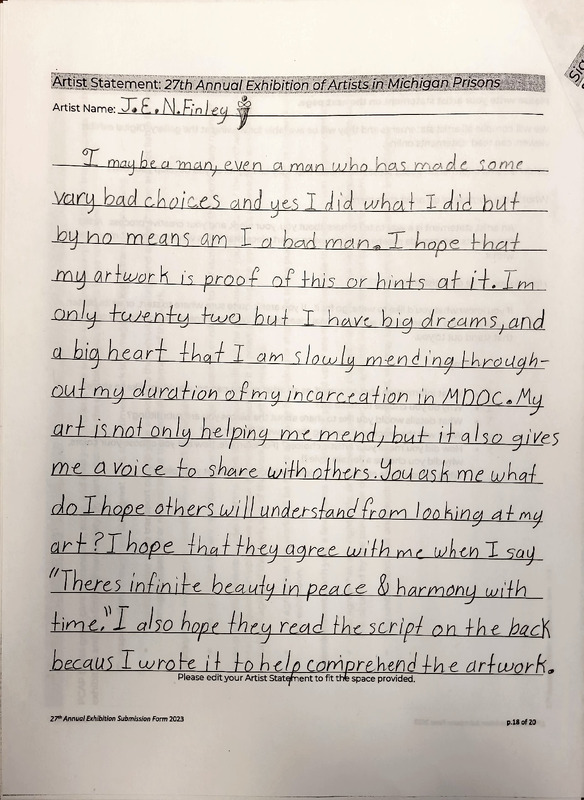 Artist Statement: 27th Annual Exhibition of Artists in Michigan Prisons
Artist Name: J.E.N.Finley
I may be a man, even a man who has made some
vary bad choices and yes I did what I did but
by no means am I a bad man. I hope that
my artwork is proof of this or hints at it. Im
only twenty two but I have big dreams, and
a big heart that I am slowly mending through-
out my duration of my incarceation in MDOC. My
art is not only helping me mend, but it also gives
me a voice to share with others. You ask me what
do I hope others will understand from looking at my
art? I hope that they agree with me when I say
"Theres infinite beauty in peace & harmony with
time." I also hope they read the script on the back
becaus I wrote it to help comprehend the artwork.
Please edit your Artist Statement to fit the space provided.
27th Annual Exhibition Submission Form 2023
p.18 of 20